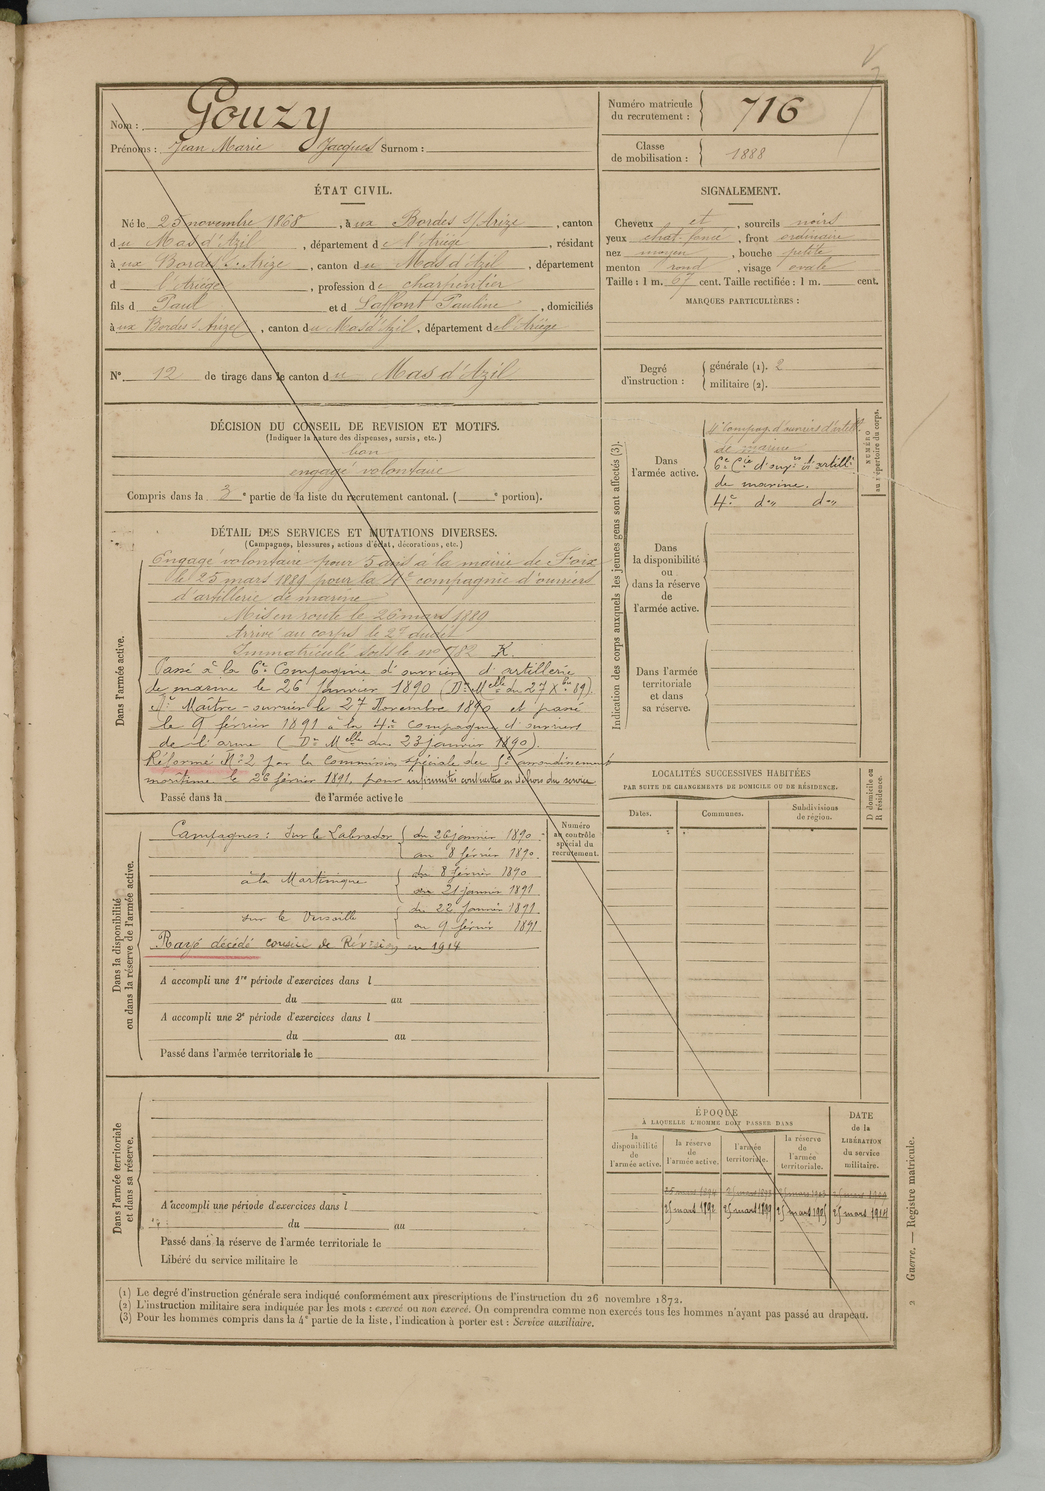 Nom : Gouzy
Prénoms : Jean Marie Jacques Surnom :
Numéro matricule du recrutement : 716
Classe de mobilisation : 1888
ÉTAT CIVIL.
Né le 25 novembre 1868, à ux Bordes s/Arize, canton
du Mas d'Azil, département de l'Ariège, résidant
à ux Bordes s/Arize, canton du Mas d'Azil, département
d l'Ariège, profession de charpentier
fils d Paul et d Laffont Pauline, domiciliés
à ux Bordes s/Arize, canton du Mas d'Azil, département de l'Ariège
SIGNALEMENT.
Cheveux et, sourcils noirs
yeux chat. foncé, front ordinaire
nez moyen, bouche petite
menton rond, visage ovale
Taille : 1 m. 67 cent. Taille rectifiée : 1 m. cent.
MARQUES PARTICULIÈRES :
N° 12 de tirage dans le canton du Mas d'Azil
Degré d'instruction : générale (1). 2
militaire (2).
DÉCISION DU CONSEIL DE REVISION ET MOTIFS.
(Indiquer la nature des dispenses, sursis, etc.)
bon
engagé volontaire
Compris dans la 3e partie de la liste du recrutement cantonal. ( e portion).
DÉTAIL DES SERVICES ET MUTATIONS DIVERSES.
(Campagnes, blessures, actions d'éclat, décorations, etc.)
Dans l'armée active.
Engagé volontaire pour 5 ans à la mairie de Foix
le 25 mars 1889 pour la 4e compagnie d'ouvriers
d'artillerie de marine
Mis en route le 26 mars 1889
Arrivé au corps le 29 dudit
Immatriculé sous le n° 782 K.
Passé à la 6e Compagnie d'ouvriers d'artillerie
de marine le 26 Janvier 1890 (Don Mlle du 27 Xbre 89).
Maître-ouvrier le 27 Novembre 1890 et passé
le 9 février 1891 à la 4e compagnie d'ouvriers
de l'arme (Don Mlle du 23 janvier 1890).
Réformé N° 2 par la Commission spéciale du 5e arrondissement
maritime le 26 février 1891, pour infirmités contractées en dehors du service
Passé dans la de l'armée active le
Indication des corps auxquels les jeunes gens sont affectés (3).
Dans l'armée active.
4e Compag. d'ouvriers d'artille
de marine
6e Cie d'ouvrs d'artille
de marine.
4e do do
Dans la disponibilité ou dans la réserve de l'armée active.
Dans l'armée territoriale et dans sa réserve.
NUMÉRO au répertoire du corps.
LOCALITÉS SUCCESSIVES HABITÉES
PAR SUITE DE CHANGEMENTS DE DOMICILE OU DE RÉSIDENCE.
Dates. Communes. Subdivisions de région.
D domicile ou R résidence.
Numéro au contrôle spécial du recrutement.
Dans la disponibilité ou dans la réserve de l'armée active.
Campagnes : Sur le Labrador du 26 janvier 1890
au 8 février 1890.
à la Martinique du 8 février 1890
au 21 janvier 1891
sur le Versaille du 22 Janvier 1891
au 9 février 1891.
Rayé décédé conseil de Révision en 1914
A accompli une 1re période d'exercices dans l
du au
A accompli une 2e période d'exercices dans l
du au
Passé dans l'armée territoriale le
Dans l'armée territoriale et dans sa réserve.
A accompli une période d'exercices dans l
du au
Passé dans la réserve de l'armée territoriale le
Libéré du service militaire le
ÉPOQUE
À LAQUELLE L'HOMME DOIT PASSER DANS
la disponibilité de l'armée active.
la réserve de l'armée active.
l'armée territoriale.
la réserve de l'armée territoriale.
DATE de la LIBÉRATION du service militaire.
25 mars 1892 25 mars 1899 25 mars 1905 25 mars 1914
(1) Le degré d'instruction générale sera indiqué conformément aux prescriptions de l'instruction du 26 novembre 1872.
(2) L'instruction militaire sera indiquée par les mots : exercé ou non exercé. On comprendra comme non exercés tous les hommes n'ayant pas passé au drapeau.
(3) Pour les hommes compris dans la 4e partie de la liste, l'indication à porter est : Service auxiliaire.
2 Guerre. — Registre matricule.